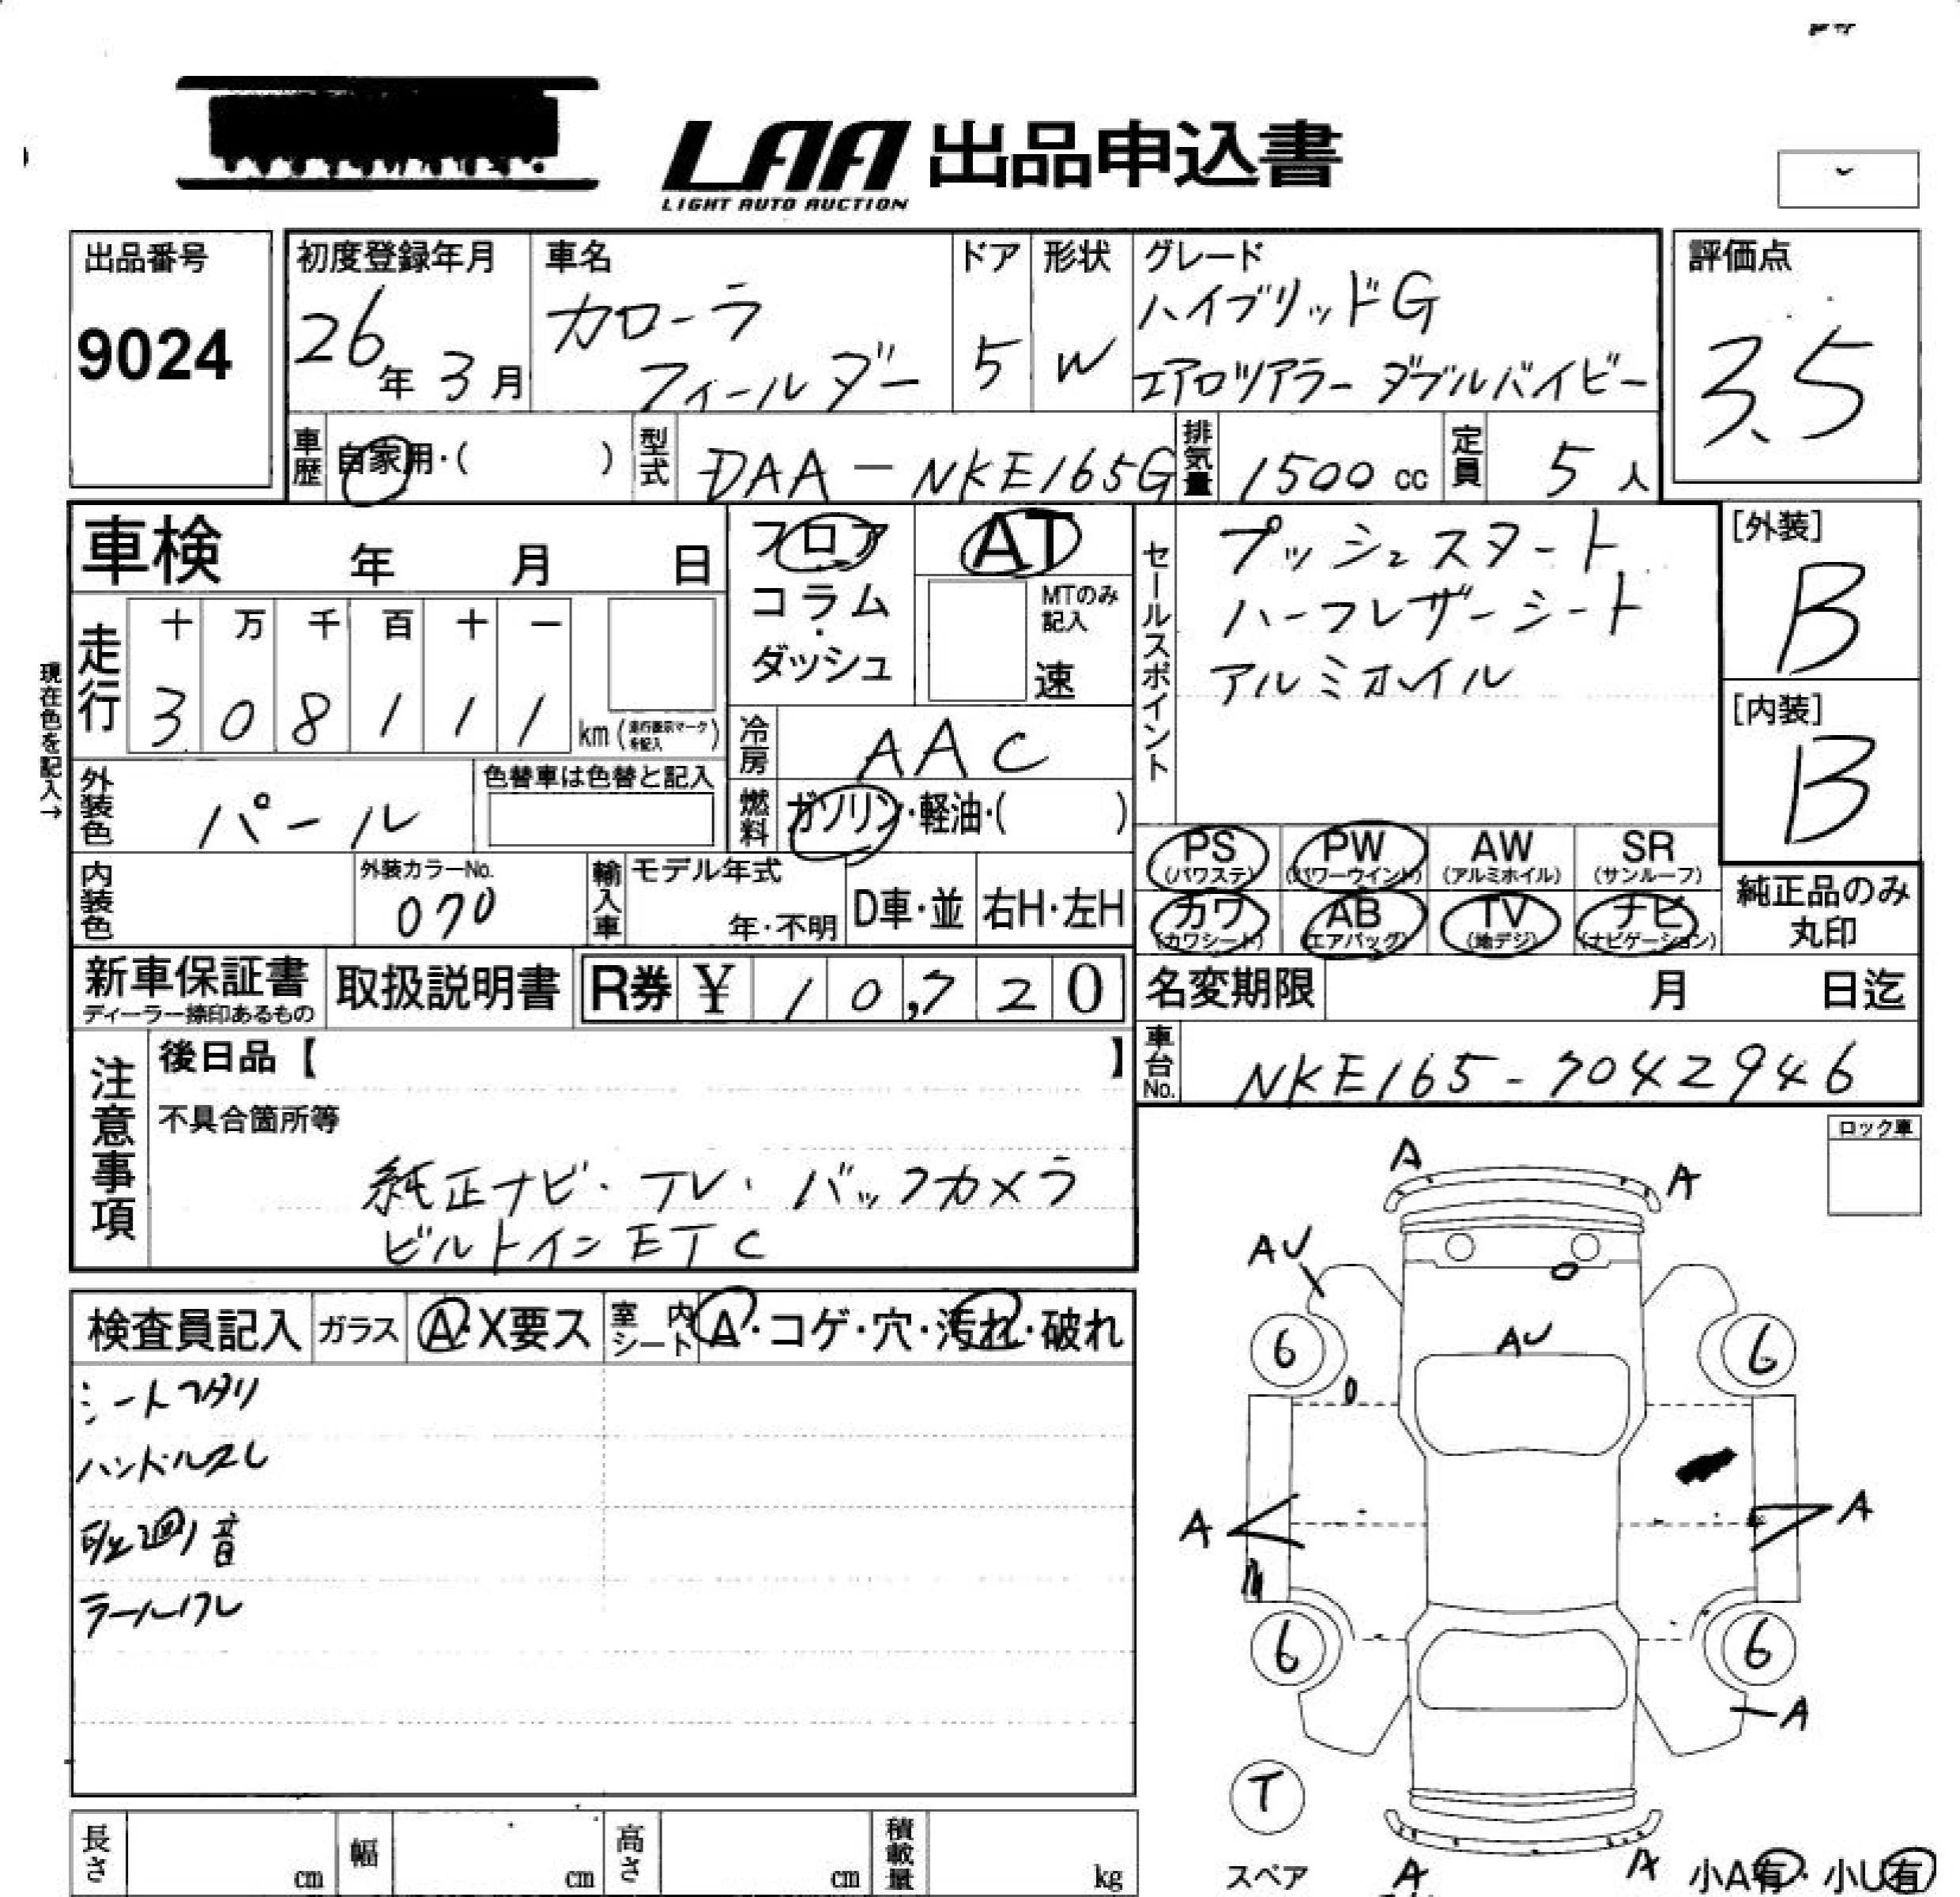 LAA 出品申込書
LIGHT AUTO AUCTION
出品番号
9024
初度登録年月
26年 3月
車名
カローラ
フィールダー
ドア
5
形状
W
グレード
ハイブリッドG
エアロツアラー ダブルバイビー
評価点
3.5
車歴
自家用・( )
型式
DAA-NKE165G
排気量
1500 cc
定員
5 人
車検 年 月 日
フロア
コラム
・
ダッシュ
AT
MTのみ記入
速
セールスポイント
プッシュスタート
ハーフレザーシート
アルミホイル
[外装]
B
[内装]
B
現在色を記入→
走行
十 万 千 百 十 一
3 0 8 1 1 1 km (走行表示マークを記入)
冷房
AAC
燃料
ガソリン・軽油・( )
外装色
パール
色替車は色替と記入
内装色
外装カラーNo.
070
輸入車
モデル年式
年・不明
D車・並
右H・左H
PS (パワステ)
PW (パワーウインド)
AW (アルミホイル)
SR (サンルーフ)
カワ (カワシート)
AB (エアバッグ)
TV (地デジ)
ナビ (ナビゲーション)
純正品のみ
丸印
新車保証書
ディーラー捺印あるもの
取扱説明書
R券 ¥ 10,720
名変期限 月 日迄
車台No.
NKE165-7042946
注意事項
後日品【 】
不具合箇所等
純正ナビ・TV・バックカメラ
ビルトインETC
ロック車
検査員記入
ガラス
A・X要ス
室内シート
A・コゲ・穴・汚れ・破れ
ハンドルスレ
A
A
AU
AU
6
6
A
A
6
6
A
T
スペア
A
A
小A有・小U有
長さ cm
幅 cm
高さ cm
積載量 kg